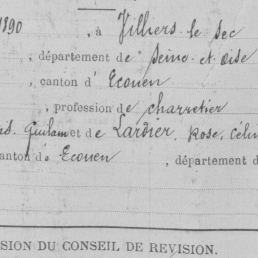 1890, à Villiers le sec
, département de Seine et Oise
, canton d'Ecouen
, profession de charretier
et de Lardier, Rose, Célin
canton d'Ecouen, département d
SION DU CONSEIL DE REVISION.